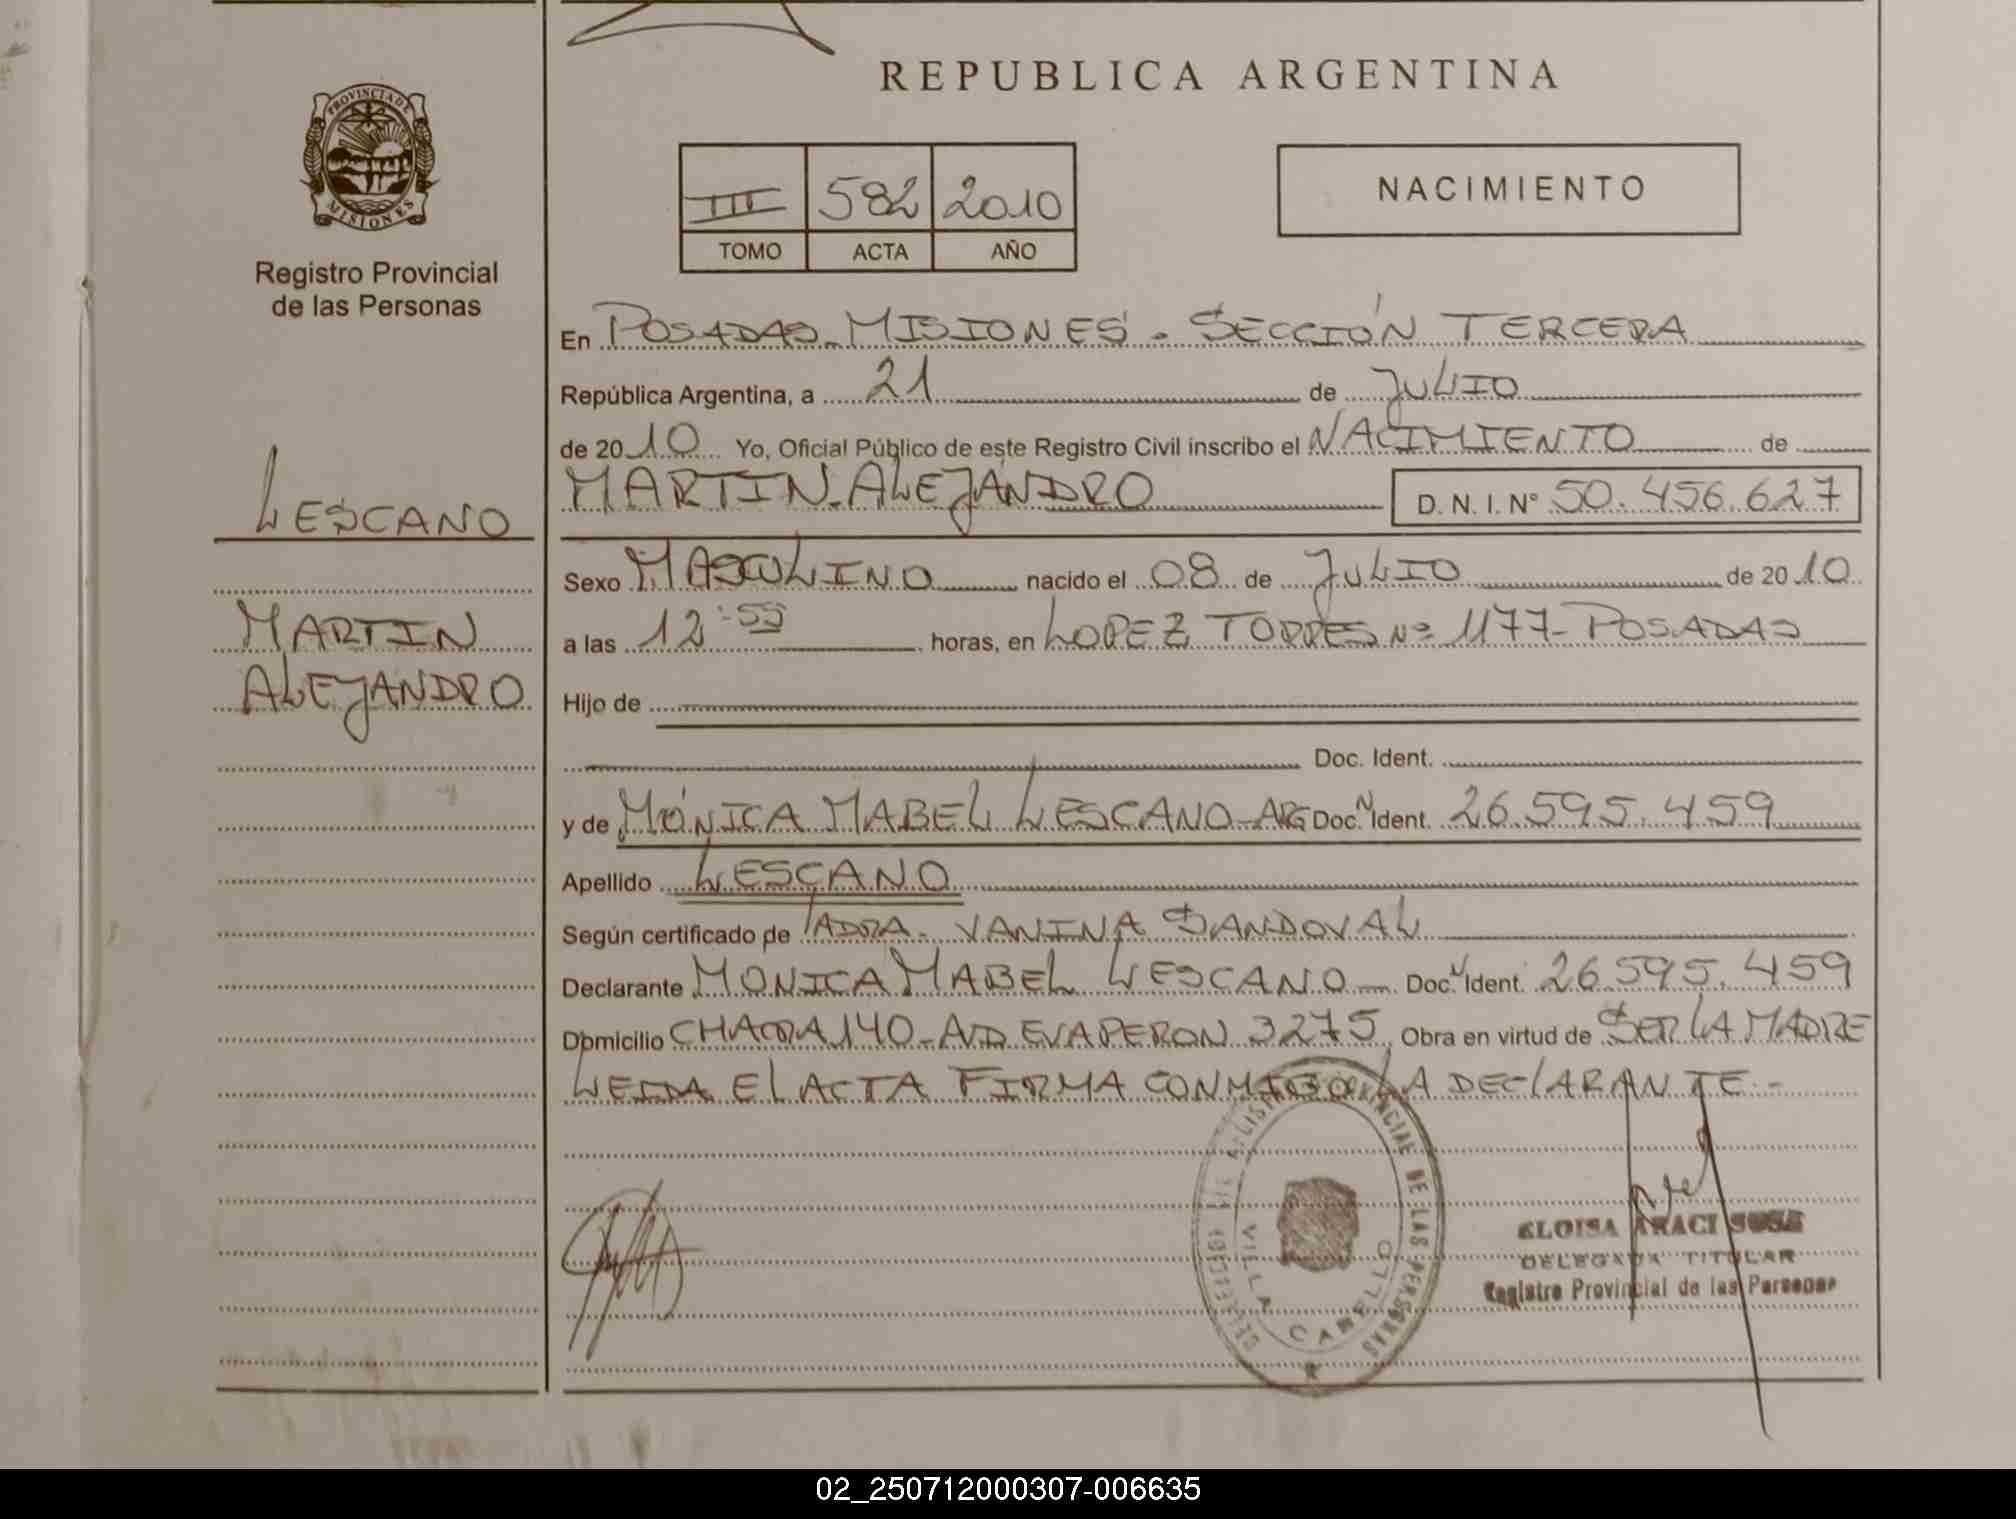 REPUBLICA ARGENTINA
PROVINCIA DE
MISIONES
Registro Provincial
de las Personas
III 582 2010
TOMO ACTA AÑO
NACIMIENTO
En POSADAS - MISIONES - SECCIÓN TERCERA
República Argentina, a 21 de JULIO
de 2010 Yo, Oficial Público de este Registro Civil inscribo el NACIMIENTO de
MARTIN ALEJANDRO D. N. I. Nº 50.456.627
LESCANO
MARTIN
ALEJANDRO
Sexo MASCULINO nacido el 08 de JULIO de 2010
a las 12:55 horas, en LOPEZ TORRES Nº 1177 - POSADAS
Hijo de
Doc. Ident.
y de MÓNICA MABEL LESCANO - ARG Doc. N Ident. 26.595.459
Apellido LESCANO
Según certificado de VANINA SANDOVAL
Declarante MONICA MABEL LESCANO Doc. N Ident. 26.595.459
Domicilio CHACRA 140 - AVD EVA PERON 3275 Obra en virtud de SER LA MADRE
LEIDA EL ACTA FIRMA CONMIGO LA DECLARANTE.-
PROVINCIAL DE LAS PERSONAS
VILLA CABELLO
ELOISA ARACI
DELEGADA TITULAR
Registro Provincial de las Personas
02_250712000307-006635